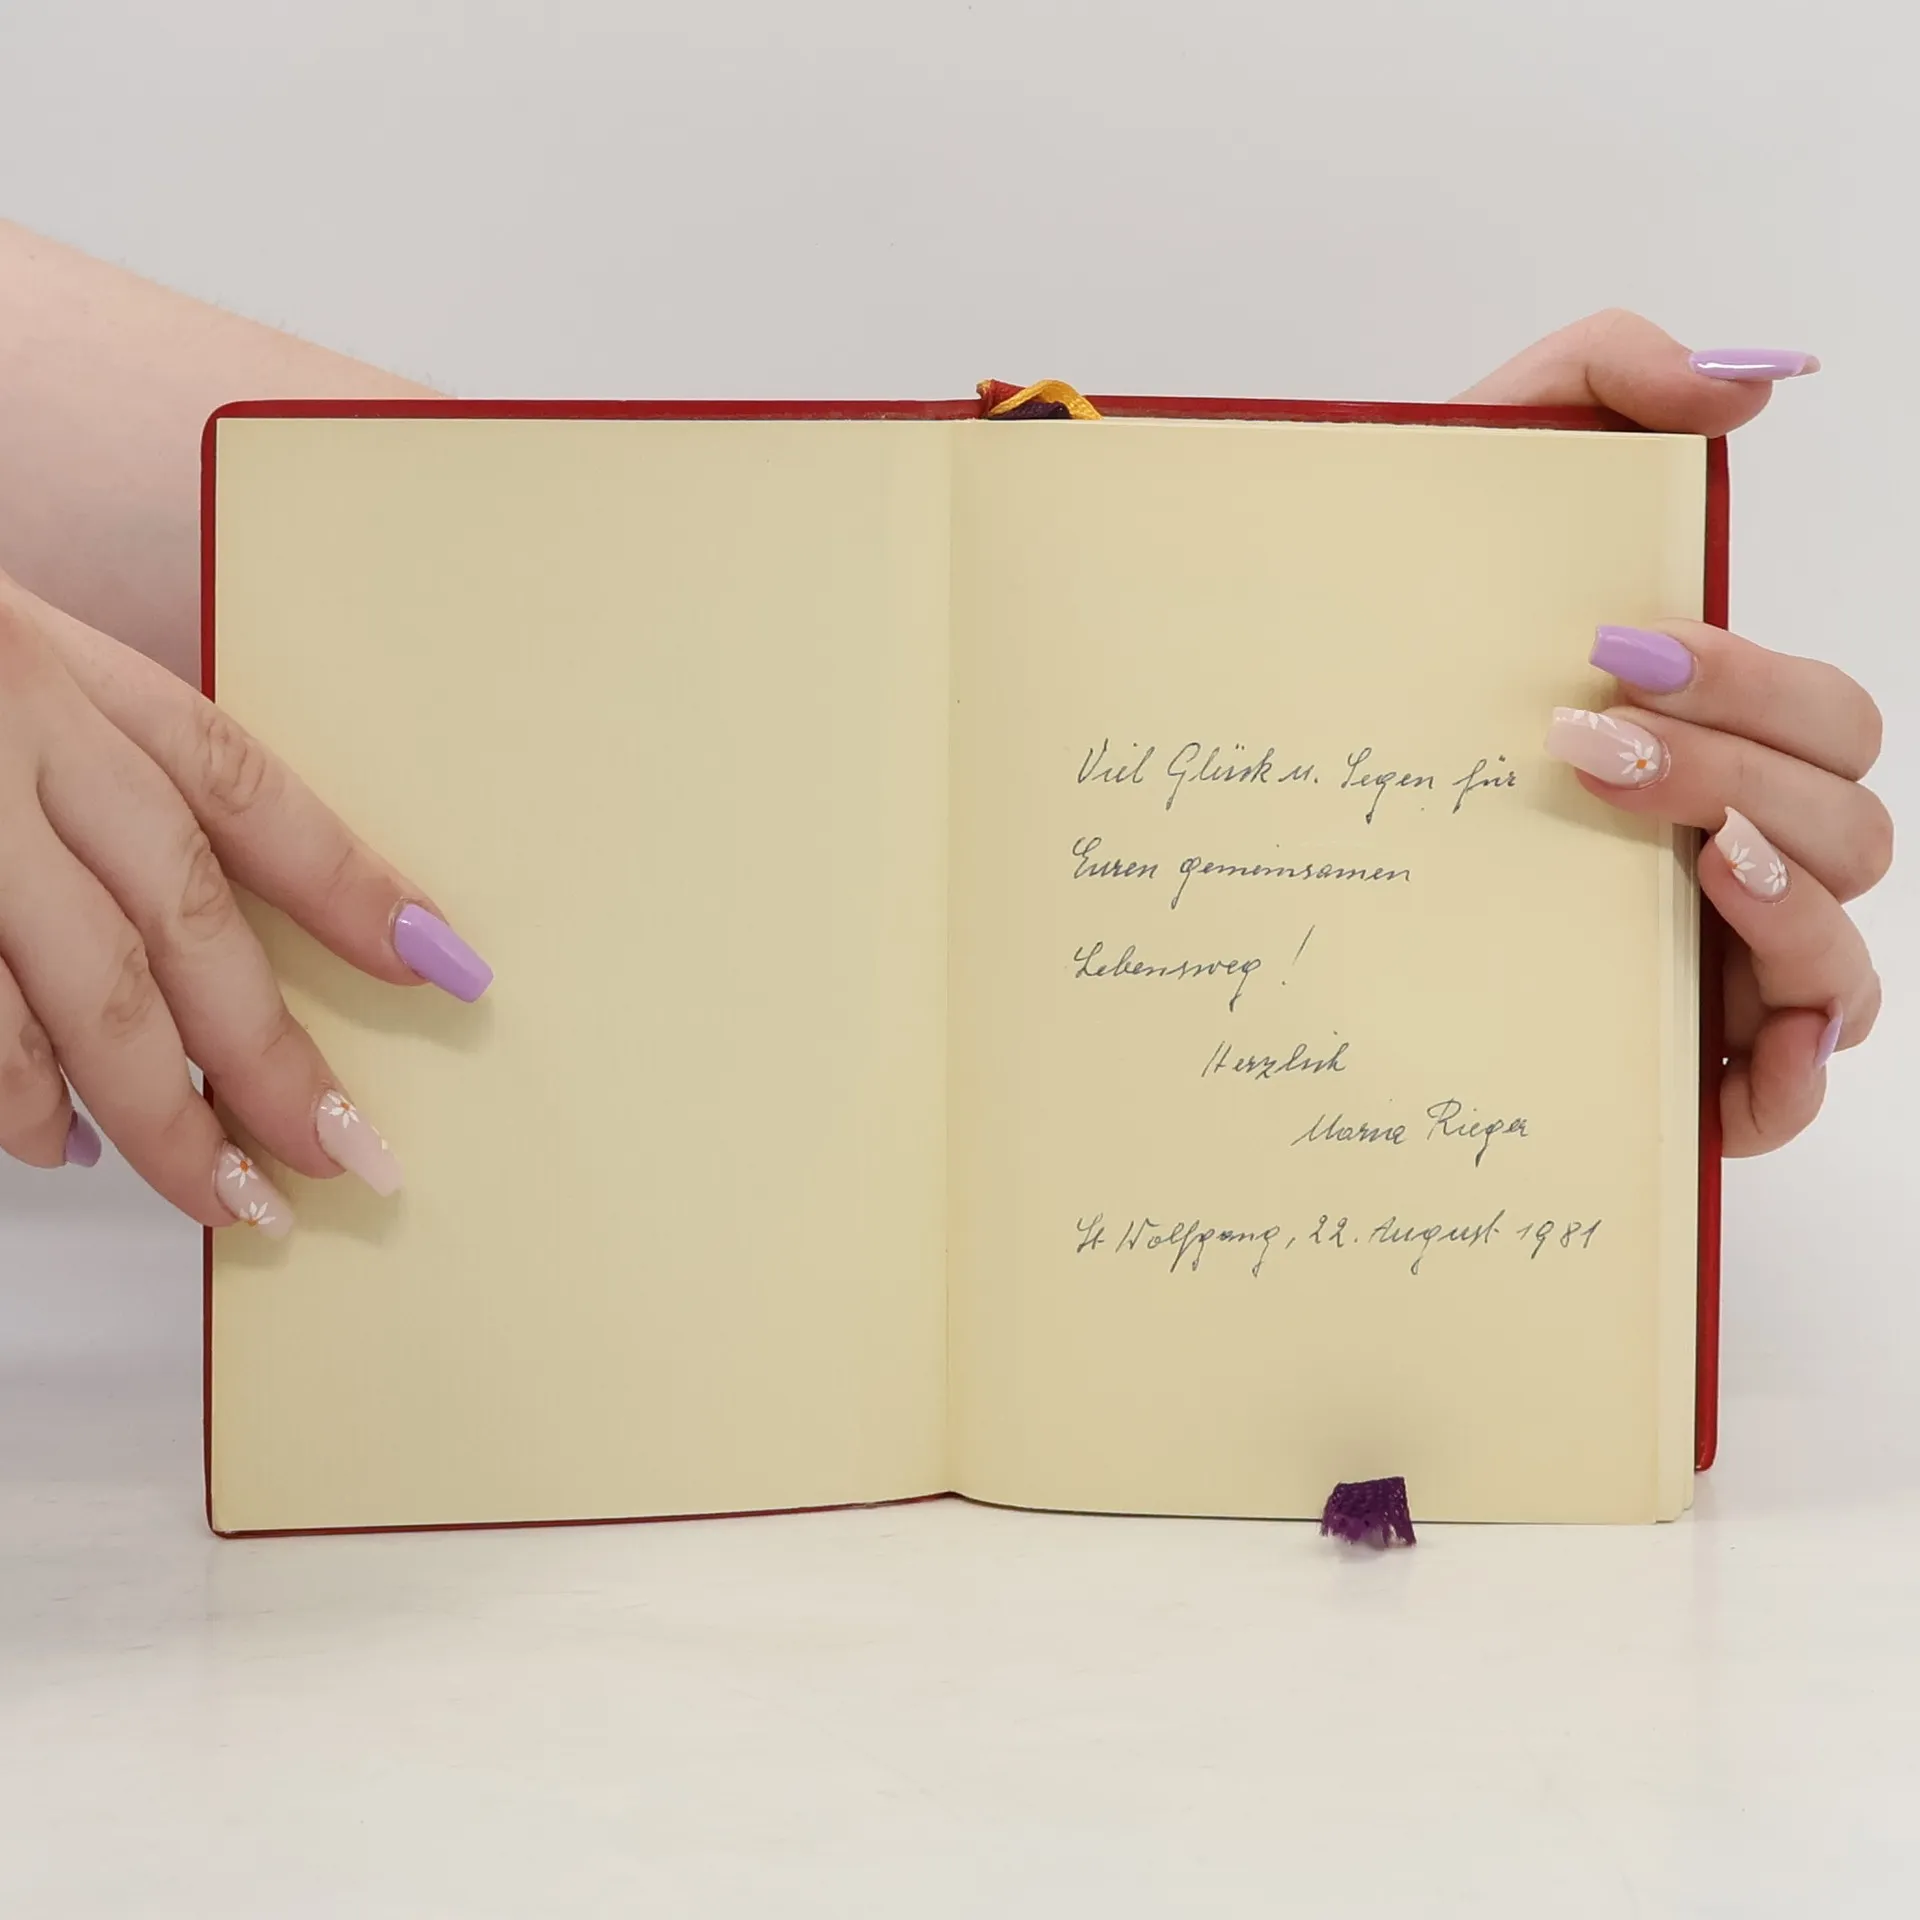 Viel Glück u. Segen für
Euren gemeinsamen
Lebensweg !
Herzlich
Maria Rieger
St Wolfgang, 22. August 1981